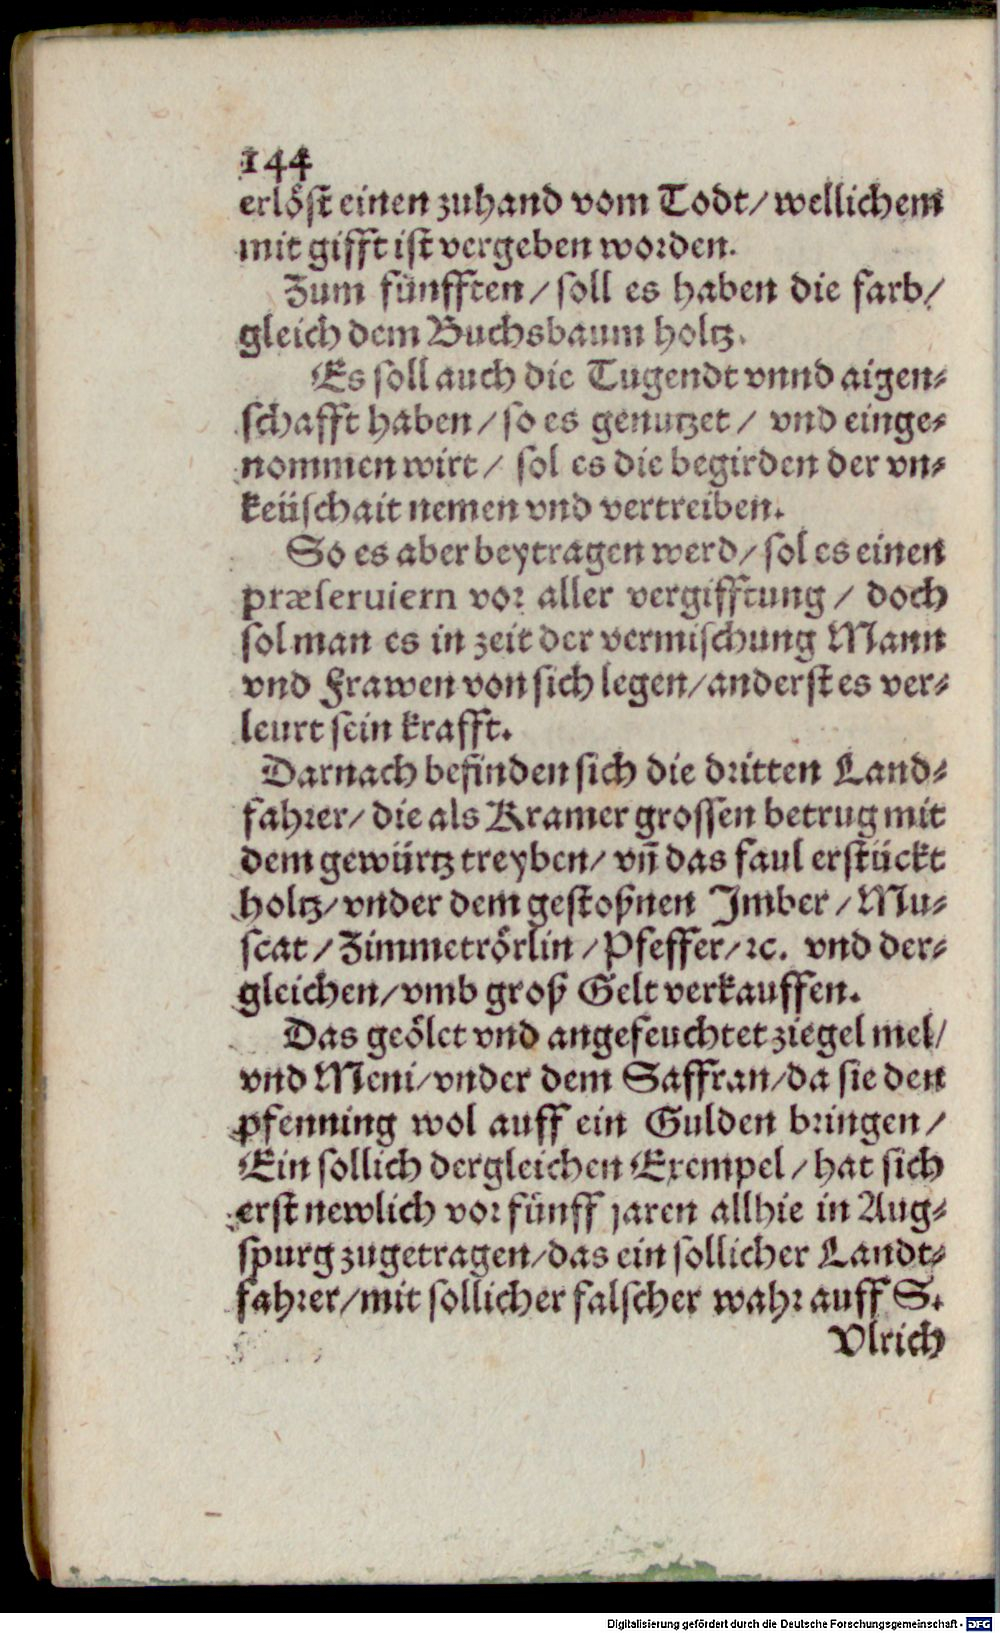 144
erlöst einen zuhand vom Todt/ wellichem
mit gifft ist vergeben worden.
Zum fünfften/ soll es haben die farb/
gleich dem Buchsbaum holtz.
Es soll auch die Tugendt vnnd aigen-
schafft haben/ so es genutzet/ vnd einge-
nommen wirt/ sol es die begirden der vn-
keüschait nemen vnd vertreiben.
So es aber beytragen werd/ sol es einen
præseruiern vor aller vergifftung/ doch
sol man es in zeit der vermischung Mann
vnd Frawen von sich legen/ anderst es ver-
leurt sein krafft.
Darnach befinden sich die dritten Land-
fahrer/ die als Kramer grossen betrug mit
dem gewürtz treyben/ vn̄ das faul erstückt
holtz/ vnder dem gestoßnen Imber/ Mu-
scat/ Zimmetrörlin/ Pfeffer/ ꝛc. vnd der-
gleichen/ vmb groß Gelt verkauffen.
Das geölet vnd angefeuchtet ziegel mel/
vnd Meni/ vnder dem Saffran/ da sie den
pfenning wol auff ein Gulden bringen/
Ein sollich dergleichen Exempel/ hat sich
erst newlich vor fünff jaren allhie in Aug-
spurg zugetragen/ das ein sollicher Landt-
fahrer/ mit sollicher falscher wahr auff S.
Vlrich
Digitalisierung gefördert durch die Deutsche Forschungsgemeinschaft - DFG